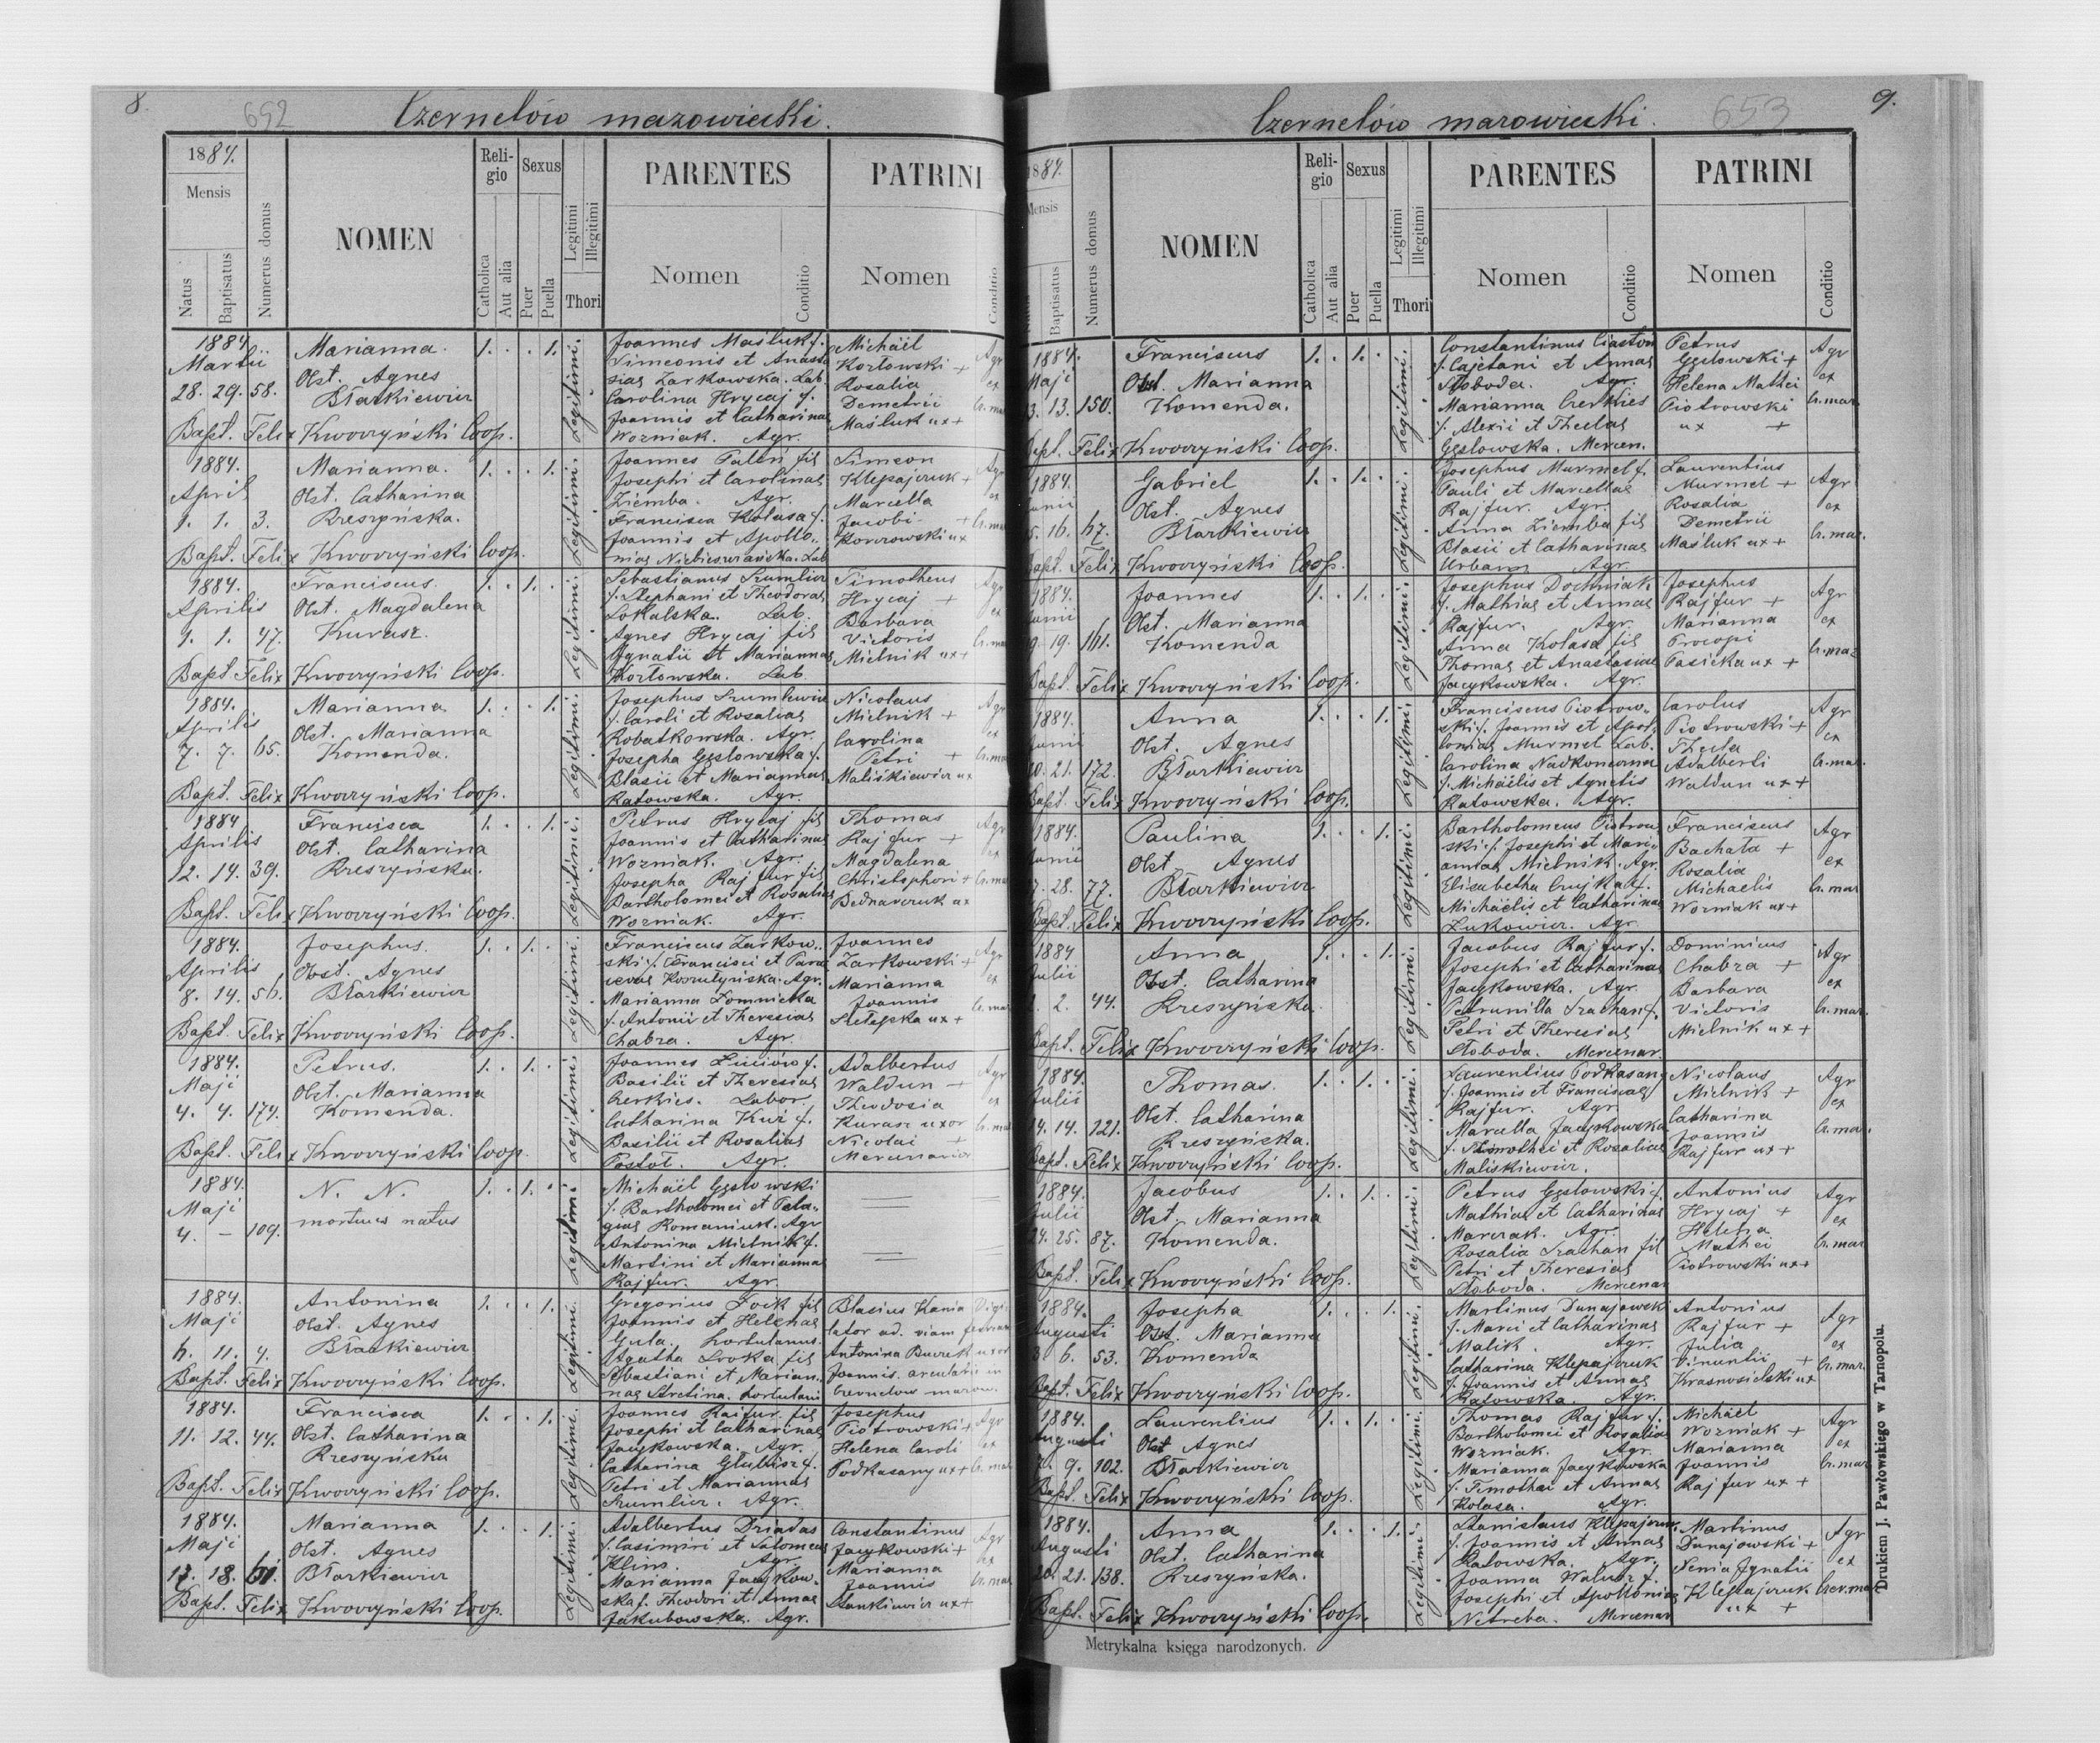 8.
652
Czernelów mazowiecki.
1884.
Mensis
Natus
Baptisatus
Numerus domus
NOMEN
Reli-
gio
Catholica
Aut alia
Sexus
Puer
Puella
Legitimi
Illegitimi
Thori
PARENTES
Nomen
Conditio
PATRINI
Nomen
Conditio
1884
Martii
28. 29. 58.
Marianna.
Obst. Agnes
Błarkiewicz
Bapt. Felix Kwoczyński Coop.
1. . . 1.
Legitimi.
Joannes Maśluk f.
Simeonis et Anasta
siae Zarkowska. Lab.
Carolina Hrycaj f.
Joannis et Catharinae
Wozniak. Agr.
Michäel
Kozłowski +
Rosalia
Demetrii
Maśluk ux +
Agr
ex
1884.
April
1. 1. 3.
Marianna.
Obst. Catharina
Kreszyńska.
Bapt. Felix Kwoczyński Coop.
1. . . 1.
Legitimi.
Joannes Paleń fil
Josephi et Carolinae
Ziemba. Agr.
Francisca Kolasa f.
Joannis et Apollo„
niae
Simeon
Klepajczuk +
Marcella
Jacobi +
ux
1884.
Aprilis
1. 1. 47.
Franciscus.
Obst. Magdalena
Kurasz.
Bapt. Felix Kwoczyński Coop.
1. . 1. .
Legitimi.
Sebastianus Szumlicz
f. Stephani et Theodorae
Sokalska. Lab.
Agnes Hrycaj fil
Ignatii et Mariannae
Kozłowska. Lab.
Timotheus
Hrycaj +
Barbara
Victoris
Mielnik ux +
1884.
Aprilis
7. 7. 65.
Marianna
Obst. Marianna
Komenda.
Bapt. Felix Kwoczyński Coop.
1. . . 1.
Legitimi.
Josephus
f. Caroli et Rosaliae
Robatkowska. Agr.
Josepha Gęslowska f.
Blasii et Mariannae
Ratowska. Agr.
Nicolaus
Mielnik +
Carolina
Petri +
Maliśkiewicz ux
1884
Aprilis
12. 14. 39.
Francisca
Obst. Catharina
Kreszyńska.
Bapt. Felix Kwoczyński Coop.
1. . . 1.
Legitimi.
Petrus Hrycaj fil
Joannis et Catharinae
Wozniak. Agr.
Josepha Rajfur fil
Bartholomei et Rosaliae
Wozniak. Agr.
Thomas
Rajfur +
Magdalena
Christophori +
Bednarczuk ux
1884.
Aprilis
8. 14. 56.
Josephus.
Obst. Agnes
Błarkiewicz
Bapt. Felix Kwoczyński Coop.
1. . 1. .
Legitimi.
Franciscus Zarkow„
ski f. Francisci et Paras
cevae Agr.
Marianna Łomnicka
f. Antonii et Theresiae
Chabra. Agr.
Joannes
Zarkowski +
Marianna
Joannis
ux +
1884.
Maji
4. 4. 174.
Petrus.
Obst. Marianna
Komenda.
Bapt. Felix Kwoczyński Coop.
1. . 1. .
Legitimi.
Joannes f.
Basilii et Theresiae
Czerkies. Labor.
Catharina Kuź f.
Basilii et Rosaliae
Postół. Agr.
Adalbertus
Waldun +
Theodosia
Kurasz uxor
Nicolai +
Mercenarior
1884.
Maji
4. – 109.
N. N.
mortuus natus
1. . 1. .
Legitimi
Michäel Gęslowski
f. Bartholomei et Pela„
giae Romaniuk. Agr
Antonina Mielnik f.
Martini et Marianna
Rajfur. Agr.
1884.
Maji
6. 11. 4.
Antonina
Obst. Agnes
Błarkiewicz
Bapt. Felix Kwoczyński Coop.
1. . . 1.
Legitimi.
Gregorius fil
Joannis et Helenae
Gula. Hortulanus.
Agatha Sroka fil
Sebastiani et Marian„
nae Hortulani
Blasius Kania Vigi
lator ad. viam ferream
Antonina uxor
Joannis. arendatii in
Czernelow mazow.
1884.
11. 12. 44.
Francisca
Obst. Catharina
Kreszyńska
Bapt. Felix Kwoczyński Coop.
1. . . 1.
Legitimi.
Joannes Rajfur fil
Josephi et Catharinae
Jacykowska. Agr.
Catharina f.
Petri et Mariannae
Szumlicz. Agr.
Josephus
Piotrowski +
Helena Caroli
Podkasany ux +
1884.
Maji
17. 18. 61.
Marianna
Obst. Agnes
Błarkiewicz
Bapt. Felix Kwoczyński Coop.
1. . . 1.
Legitimi.
Adalbertus Dziadas
f. Casimiri et Salomeae
Klim. Agr.
Marianna Jacykow„
ska f. Theodori et Annae
Jakubowska. Agr.
Constantinus
Jacykowski +
Marianna
Joannis
Stankiewicz ux +
9.
653
Czernelów mazowiecki.
1884.
Mensis
Baptisatus
Numerus domus
NOMEN
Reli-
gio
Catholica
Aut alia
Sexus
Puer
Puella
Legitimi
Illegitimi
Thori
PARENTES
Nomen
Conditio
PATRINI
Nomen
Conditio
1884.
Maji
13. 150.
Franciscus
Obst. Marianna
Komenda.
Bapt. Felix Kwoczyński Coop.
1. . 1. .
Legitimi.
Constantinus Ciastoń
f. Cajetani et Annae
Słoboda. Agr.
Marianna Czerkies
f. Alexii et Theclae
Gęslowska. Mercen.
Petrus
Gęslowski +
Helena Mathei
Piotrowski
ux +
Agr
ex
Cz. maz.
1884.
Junii
16. 67.
Gabriel
Obst. Agnes
Błarkiewicz
Bapt. Felix Kwoczyński Coop.
1. . 1. .
Legitimi.
Josephus Murmel f.
Pauli et Marcellae
Rajfur. Agr.
Anna Ziemba fil
Blasii et Catharinae
Urban Agr.
Laurentius
Murmel +
Rosalia
Demetrii
Maśluk ux +
Agr
ex
Cz. maz.
1884.
Junii
19. 161.
Joannes
Obst. Marianna
Komenda
Bapt. Felix Kwoczyński Coop.
1. . 1. .
Legitimi.
Josephus Dochniak
f. Mathiae et Annae
Rajfur. Agr.
Anna Kolasa fil
Thomae et Anastasiae
Jacykowska. Agr.
Josephus
Rajfur +
Marianna
Procopi
Pasieka ux +
Agr
ex
Cz. maz
1884.
Junii
21. 172.
Anna
Obst. Agnes
Błarkiewicz
Bapt. Felix Kwoczyński Coop.
1. . . 1.
Legitimi.
Franciscus Piotrow„
ski f. Joannis et Apol„
loniae Murmel Lab.
Carolina Nadkoneczna
f. Michäelis et Agnetis
Ratowska. Agr.
Carolus
Piotrowski +
Thecla
Adalberti
Waldun ux +
Agr
ex
Cz. maz.
1884.
Junii
28. 77.
Paulina
Obst. Agnes
Błarkiewicz
Bapt. Felix Kwoczyński Coop.
1. . . 1.
Legitimi.
Bartholomeus Piotrow
ski f. Josephi et Mari„
annae Mielnik. Agr.
Elisabetha f.
Michäelis et Catharinae
Łukowicz. Agr.
Franciscus
Bachata +
Rosalia
Michaelis
Wozniak ux +
Agr
ex
Cz. maz
1884
Julii
2. 44.
Anna
Obst. Catharina
Kreszyńska
Bapt. Felix Kwoczyński Coop.
1. . . 1.
Legitimi.
Jacobus Rajfur f.
Josephi et Catharinae
Jacykowska. Agr.
Petrunilla Strachan f.
Petri et Theresiae
Słoboda. Mercenar.
Dominicus
Chabra +
Barbara
Victoris
Mielnik ux +
Agr
ex
Cz. maz.
1884.
Julii
14. 14. 221.
Thomas.
Obst. Catharina
Kreszyńska.
Bapt. Felix Kwoczyński Coop.
1. . 1. .
Legitimi.
Laurentius Podkasany
f. Joannis et Franciscae
Rajfur. Agr.
Marcella Jacykowska
f. Timothei et Rosaliae
Maliskiewicz.
Nicolaus
Mielnik +
Catharina
Joannis
Rajfur ux +
Agr
ex
Cz. maz.
1884.
Julii
24. 25. 87.
Jacobus
Obst. Marianna
Komenda.
Bapt. Felix Kwoczyński Coop.
1. . 1. .
Legitimi.
Petrus Gęslowski f.
Mathiae et Catharinae
Marczak. Agr.
Rosalia Strachan fil
Petri et Theresiae
Słoboda. Mercenar
Antonius
Hrycaj +
Helena
Mathei
Piotrowski ux +
Agr
ex
Cz. maz
1884.
Augusti
6. 53.
Josepha
Obst. Marianna
Komenda
Bapt. Felix Kwoczyński Coop.
1. . . 1.
Legitimi.
Martinus Dunajowski
f. Marci et Catharinae
Malik. Agr.
Catharina Klepajczuk
f. Joannis et Annae
Ratowska. Agr.
Antonius
Rajfur +
Julia
Vincentii +
Krasnosielski ux
Agr
ex
Cz. maz.
1884.
Augusti
9. 102.
Laurentius
Obst Agnes
Błarkiewicz
Bapt. Felix Kwoczyński Coop.
1. . 1. .
Legitimi.
Thomas Rajfur f.
Bartholomei et Rosaliae
Wozniak. Agr.
Marianna Jacykowska
f. Timothei et Annae
Kolasa. Agr.
Michäel
Wozniak +
Marianna
Joannis
Rajfur ux +
Agr
ex
Cz. maz
1884.
Augusti
20. 21. 138.
Anna
Obst. Catharina
Kreszyńska.
Bapt. Felix Kwoczyński Coop.
1. . . 1.
Legitimi.
Stanislaus Klepajczuk
f. Joannis et Annae
Ratowska. Agr.
Joanna f.
Josephi et Apolloniae
Netreba. Mercenar
Martinus
Dunajowski +
Xenia Ignatii
Klepajczuk
ux +
Agr
ex
Czer. maz
Metrykalna księga narodzonych.
Drukiem J. Pawłowskiego w Tarnopolu.